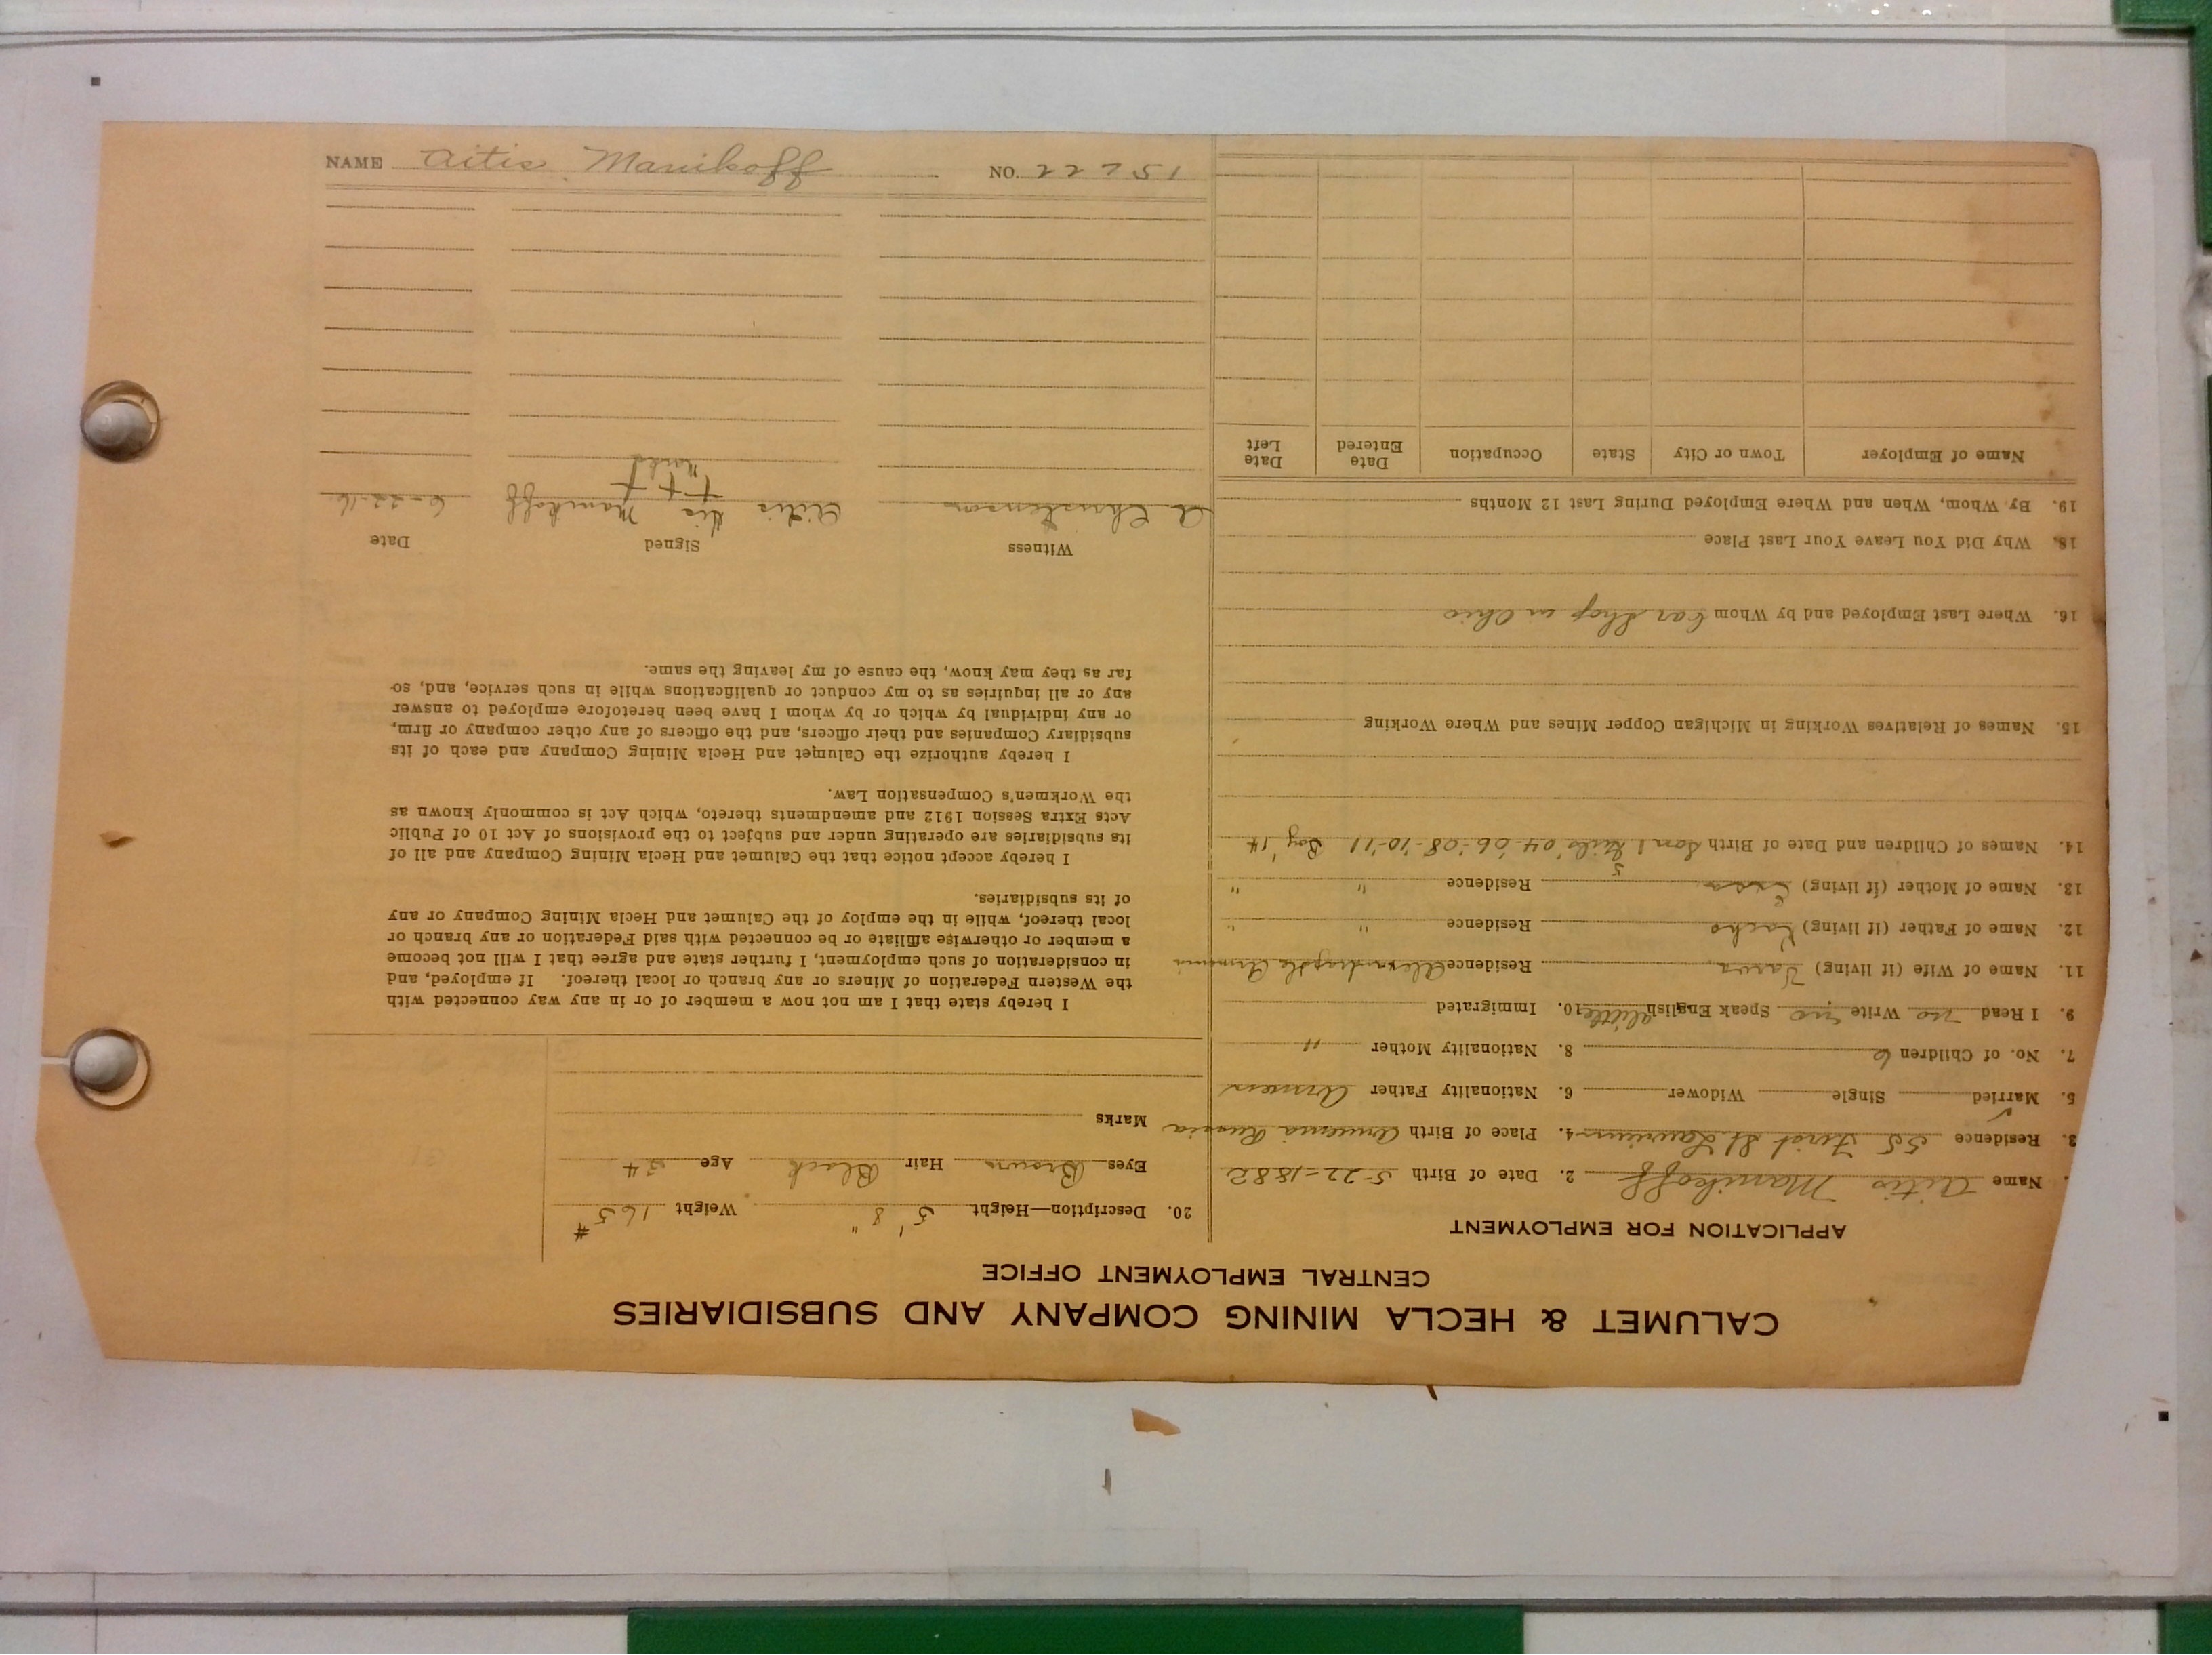 CALUMET & HECLA MINING COMPANY AND SUBSIDIARIES
CENTRAL EMPLOYMENT OFFICE
APPLICATION FOR EMPLOYMENT
Name Aitis Manikoff 2. Date of Birth 5-22-1882
3. Residence 55 First St. Laurium 4. Place of Birth Armenia Russia
5. Married ✓ Single Widower 6. Nationality Father Armen
7. No. of Children 6 8. Nationality Mother "
9. I Read no Write no Speak English little 10. Immigrated
11. Name of Wife (if living) Residence Armenia
12. Name of Father (if living) Residence " "
13. Name of Mother (if living) Residence " "
14. Names of Children and Date of Birth 5 Girls '04-'06-'08-'10-'11 Boy '14
15. Names of Relatives Working in Michigan Copper Mines and Where Working
16. Where Last Employed and by Whom Car Shop in Ohio
18. Why Did You Leave Your Last Place
19. By Whom, When and Where Employed During Last 12 Months
Name of Employer Town or City State Occupation Date Entered Date Left
20. Description—Height 5' 8" Weight 165 #
Eyes Brown Hair Black Age 34
Marks
I hereby state that I am not now a member of or in any way connected with
the Western Federation of Miners or any branch or local thereof. If employed, and
in consideration of such employment, I further state and agree that I will not become
a member or otherwise affiliate or be connected with said Federation or any branch or
local thereof, while in the employ of the Calumet and Hecla Mining Company or any
of its subsidiaries.
I hereby accept notice that the Calumet and Hecla Mining Company and all of
its subsidiaries are operating under and subject to the provisions of Act 10 of Public
Acts Extra Session 1912 and amendments thereto, which Act is commonly known as
the Workmen's Compensation Law.
I hereby authorize the Calumet and Hecla Mining Company and each of its
subsidiary Companies and their officers, and the officers of any other company or firm,
or any individual by which or by whom I have been heretofore employed to answer
any or all inquiries as to my conduct or qualifications while in such service, and, so
far as they may know, the cause of my leaving the same.
Witness Signed Date
A Christenson Aitis his Manikoff 6-22-16
mark
NAME Aitis Manikoff NO.